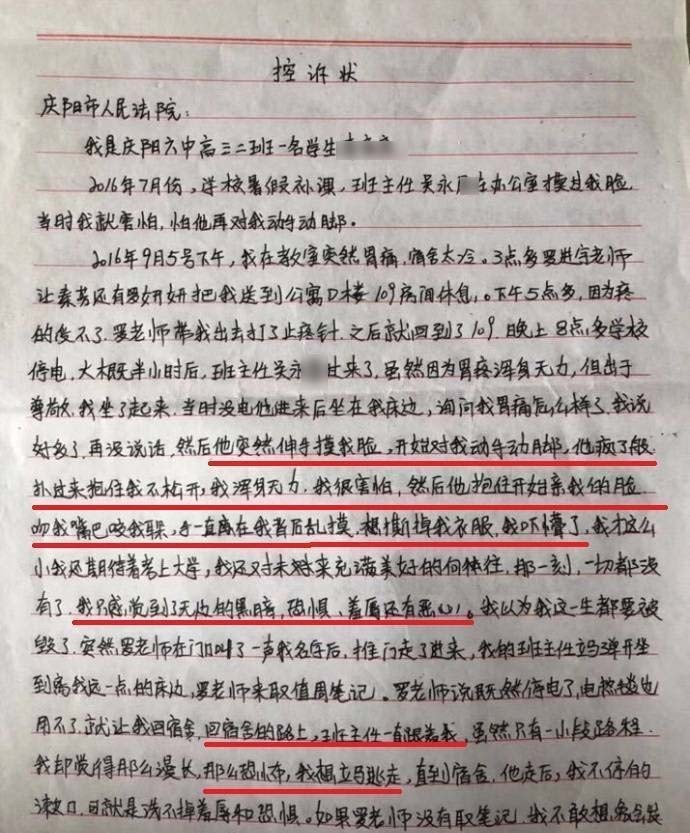 控诉状
庆阳市人民法院:
我是庆阳六中高三二班一名学生
2016年7月份,学校暑假补课,班主任吴永 在办公室摸过我脸
当时我就害怕,怕他再对我动手动脚。
2016年9月5号下午,我在教室突然胃痛,宿舍太冷。3点多罗进宇老师
让素芳还有罗妍妍把我送到公寓D楼109房间休息,。下午5点多,因为疼
的受不了.罗老师带我出去打了止疼针.之后就回到了109.晚上8点多学校
停电,大概半小时后,班主任吴永 过来了,虽然因为胃疼浑身无力,但出于
尊敬.我坐了起来.当时没电他进来后坐在我床边,询问我胃痛怎么样了.我说
好多了.再没说话,然后他突然伸手摸我脸,开始对我动手动脚,他疯了般
扑过来抱住我不松开,我浑身无力.我很害怕,然后他抱住开始亲我的脸
吻我嘴巴咬我耳朵,手一直在我背后乱摸.想撕掉我衣服,我吓懵了,我才这么
小我还期待着考上大学,我还对未来充满美好的向往,那一刻,一切都没
有了.我只感觉到了无边的黑暗,恐惧、羞辱还有恶心。我以为我这一生都要被
毁了.突然罗老师在门口叫了一声我名字后,推门走了进来,我的班主任立马弹开坐
到离我远一点的床边,罗老师来取值周笔记。罗老师说既然停电了,电热毯也
用不了.就让我回宿舍,回宿舍的路上,班主任一直跟着我,虽然只有一小段路程.
我却觉得那么漫长,那么恐怖,我想立马逃走,直到宿舍.他走后,我不停的
漱口.可就是洗不掉羞辱和恐惧。如果罗老师没有取笔记,我不敢想,我会